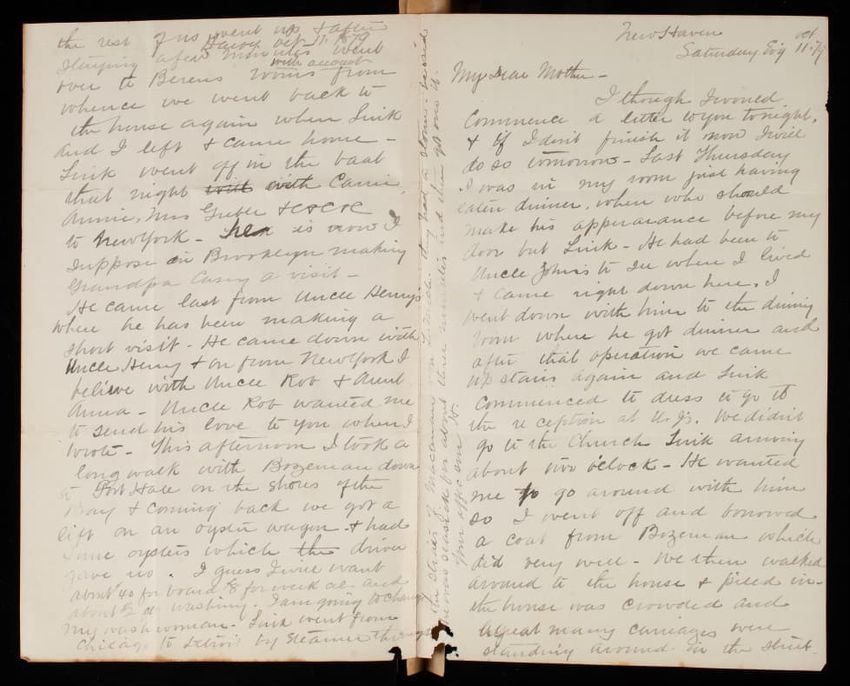 New Haven Oct
Saturday Evg 11. 79
My Dear Mother -
I though I would
commence a letter to you tonight,
& if I don't finish it now I will
do so tomorrow - Last Thursday
I was in my room just having
eaten dinner, when who should
make his appearance before my
door but Link - He had been to
Uncle John's to see where I lived
& came right down here. I
went down with him to the dining
room where he got dinner and
after that operation we came
up stairs again and Link
commenced to dress to go to
the reception at U. Jz. We didn't
go to the Church Link arriving
about two o'clock - He wanted
me to go around with him
so I went off and borrowed
a coat from Bozeman which
did very well - We then walked
around to the house & piled in -
the house was crowded and
a great many carriages were
standing around in the street -
the rest of us went up & after
Oct. 11. 1879
staying a few minutes went
with account
over to Berens rooms from
whence we went back to
the house again when Link
and I left & came home -
Link went off in the boat
that night with Carrie,
Annie, Mrs
to New York - is now I
suppose in Brooklyn making
Grandpa Casey a visit -
He came last from Uncle Henry's
where he has been making a
short visit - He came down with
Uncle Henry & on from New York I
believe with Uncle Rob & Aunt
Anna - Uncle Rob wanted me
to send his love to you when I
wrote - This afternoon I took a
long walk with Bozeman down
to Fort Hale on the shores of the
Bay & coming back we got a
lift on an oyster wagon & had
some oysters which the driver
gave us. I guess I will want
about 40 for board 8 for week al. and
about 2 do washing. I am going to change
my wash woman. Link went from
Chicago to Detroit by Steamer through
the straits of Macanaw